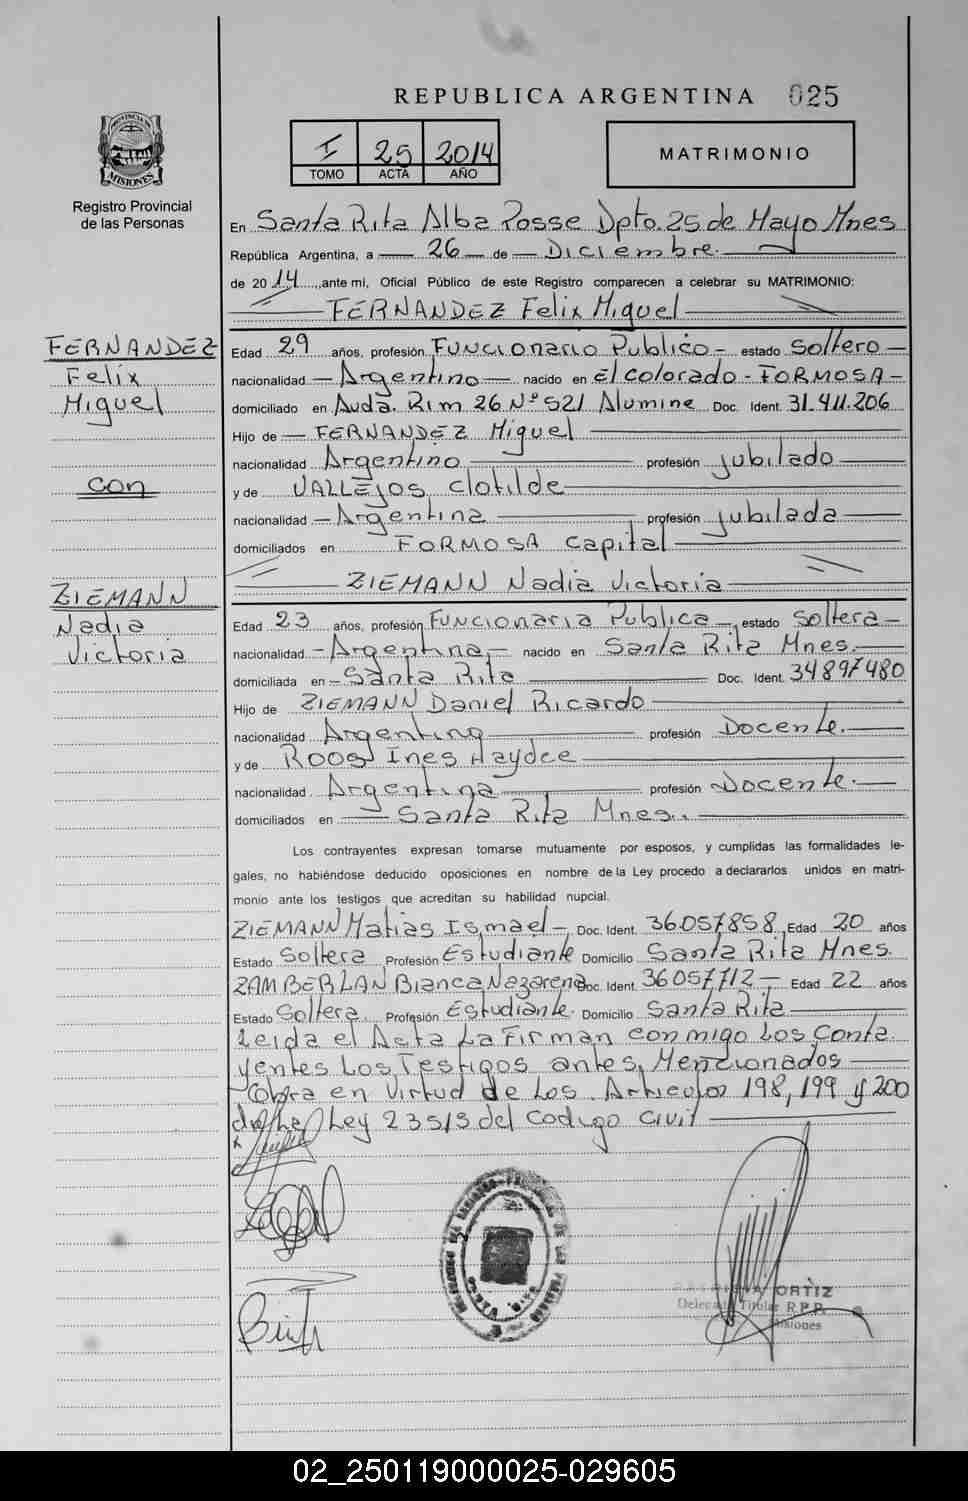 REPUBLICA ARGENTINA 025
I 25 2014
TOMO ACTA AÑO
MATRIMONIO
PROVINCIA DE
MISIONES
Registro Provincial
de las Personas
En Santa Rita Alba Posse Dpto. 25 de Mayo Mnes
República Argentina, a 26 de Diciembre.
de 2014, ante mi, Oficial Público de este Registro comparecen a celebrar su MATRIMONIO:
FERNANDEZ Felix Miguel
FERNANDEZ
Felix
Miguel
con
ZIEMANN
Nadia
Victoria
Edad 29 años, profesión Funcionario Publico - estado Soltero -
nacionalidad - Argentino - nacido en El Colorado - FORMOSA -
domiciliado en Avda. Rim 26 Nº 521 Alumine Doc. Ident. 31.411.206
Hijo de - FERNANDEZ Miguel
nacionalidad Argentino profesión jubilado
y de VALLEJOS Clotilde
nacionalidad - Argentina profesión jubilada
domiciliados en FORMOSA Capital
ZIEMANN Nadia Victoria
Edad 23 años, profesión Funcionaria Publica - estado Soltera -
nacionalidad - Argentina - nacido en Santa Rita Mnes.
domiciliada en - Santa Rita Doc. Ident. 34897480
Hijo de ZIEMANN Daniel Ricardo
nacionalidad Argentino profesión Docente.
y de ROOS Ines Haydee
nacionalidad Argentina profesión Docente.
domiciliados en Santa Rita Mnes..
Los contrayentes expresan tomarse mutuamente por esposos, y cumplidas las formalidades le-
gales, no habiéndose deducido oposiciones en nombre de la Ley procedo a declararlos unidos en matri-
monio ante los testigos que acreditan su habilidad nupcial.
ZIEMANN Matias Ismael - Doc. Ident. 36.057.858 Edad 20 años
Estado Soltera Profesión Estudiante Domicilio Santa Rita Mnes.
ZAMBERLAN Bianca Nazarena Doc. Ident. 36057712 - Edad 22 años
Estado Soltera. Profesión Estudiante. Domicilio Santa Rita
Leida el Acta La Firman conmigo Los Contra
yentes Los Testigos antes Mencionados
Obra en Virtud de Los Articulos 198, 199 y 200
de la Ley 23515 del Codigo Civil
ORTIZ
Titular R.P.P.
Misiones
02_250119000025-029605